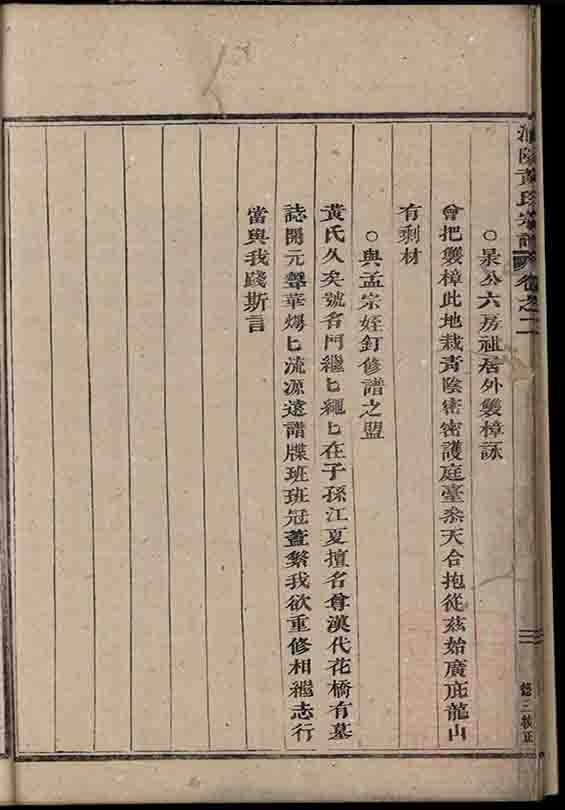 黃氏宗譜 卷之二
○景公六房祖居外雙樟詠
會把雙樟此地栽青陰密密護庭臺叅天合抱從茲始廣庇龍山
有剩材
○與孟宗姪釘修譜之盟
黃氏久矣號名門繼匕繩匕在子孫江夏擅名尊漢代花橋有墓
誌開元聲華燭匕流源遠譜牒班班冠蓋繁我欲重修相繼志行
當與我踐斯言
三校正